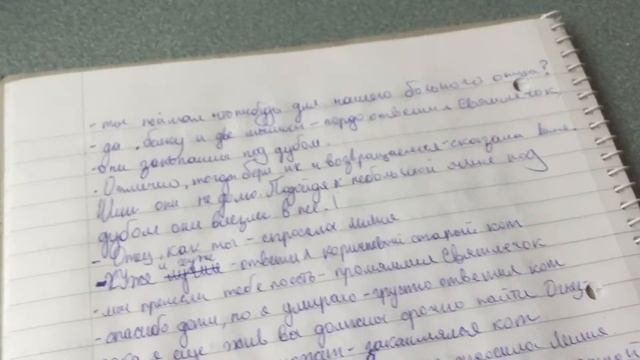 - ты поймал чтонибудь для нашего больного отца?
- да, белку и две мышки - гордо ответил Святлячок
- они закопанны под дубом.
- Отлично, тогда бери их и возвращаемся - сказала
Шли они не долго. Подойдя к небольшой яме под
дубом они влезли в неё.
- Отец, как ты - спросила лилия
- Хуже и хуже - ответил коричневый старый кот
- мы принесли тебе поесть - промямлил Святлячок
- спасибо дети, но я умираю - грустно ответил кот
я еще жив вы должны срочно найти
- закашлялся кот
лилия